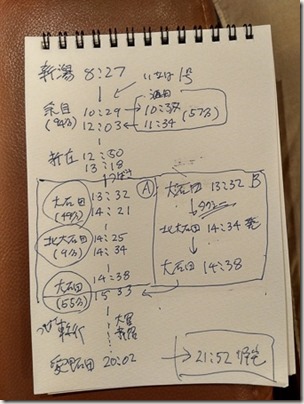 新潟 8:27
いなほ1号
酒田
余目 10:29 → 10:38 (57分)
(94分) 12:03 ← 11:34
新庄 12:50
13:18
つばさ
大石田 13:32 A
(49分) 14:21
北大石田 14:25
(9分) 14:34
大石田 14:38
(55分) 15:33
つばさ 大宮
20:02
大石田 13:32 B
タクシー
北大石田 14:34 発
大石田 14:38
21:52